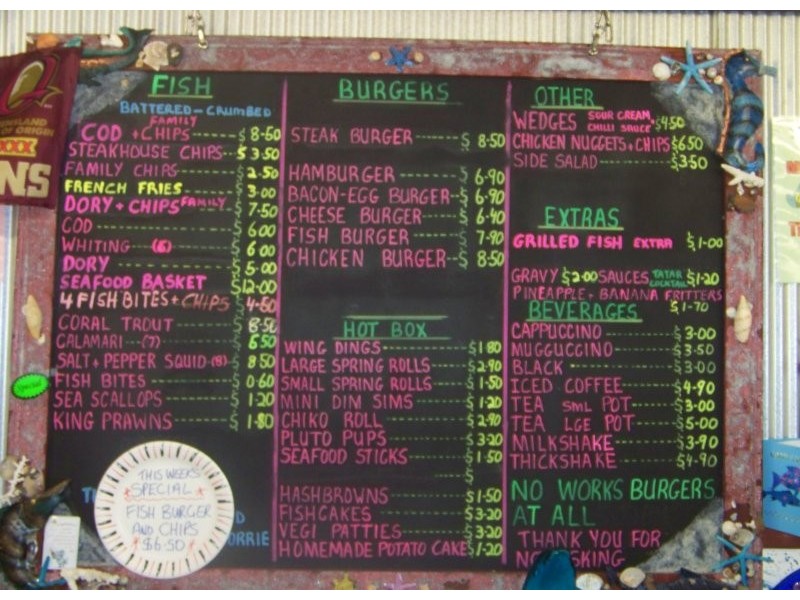 FISH
BATTERED - CRUMBED
FAMILY
COD + CHIPS $8-50
STEAKHOUSE CHIPS $3-50
FAMILY CHIPS $2-50
FRENCH FRIES $3-00
DORY + CHIPS FAMILY $7-50
COD $6-00
WHITING (6) $6-00
DORY $5-00
SEAFOOD BASKET $12-00
4 FISH BITES + CHIPS 4-50
CORAL TROUT 8-50
CALAMARI (7) 6-50
SALT + PEPPER SQUID (8) 8-50
FISH BITES 0-60
SEA SCALLOPS 1-20
KING PRAWNS 1-80
THIS WEEKS
SPECIAL
FISH BURGER
AND CHIPS
$6-50
BURGERS
STEAK BURGER $8-50
HAMBURGER $6-90
BACON-EGG BURGER $6-90
CHEESE BURGER $6-40
FISH BURGER 7-90
CHICKEN BURGER $8-50
HOT BOX
WING DINGS $1-80
LARGE SPRING ROLLS $2-90
SMALL SPRING ROLLS $1-50
MINI DIM SIMS $1-20
CHIKO ROLL $2-90
PLUTO PUPS $3-20
SEAFOOD STICKS $1-50
HASHBROWNS $1-50
FISHCAKES $3-20
VEGI PATTIES $3-20
HOMEMADE POTATO CAKE $1-20
OTHER
WEDGES SOUR CREAM, CHILLI SAUCE $4-50
CHICKEN NUGGETS + CHIPS $6-50
SIDE SALAD $3-50
EXTRAS
GRILLED FISH EXTRA $1-00
GRAVY $2-00 SAUCES TATAR COCKTAIL $1-20
PINEAPPLE + BANANA FRITTERS
$1-70
BEVERAGES
CAPPUCCINO $3-00
MUGGUCCINO $3-50
BLACK $3-00
ICED COFFEE $4-90
TEA SML POT $3-00
TEA LGE POT $5-00
MILKSHAKE $3-90
THICKSHAKE $4-90
NO WORKS BURGERS
AT ALL
THANK YOU FOR
Special
XXX
NS